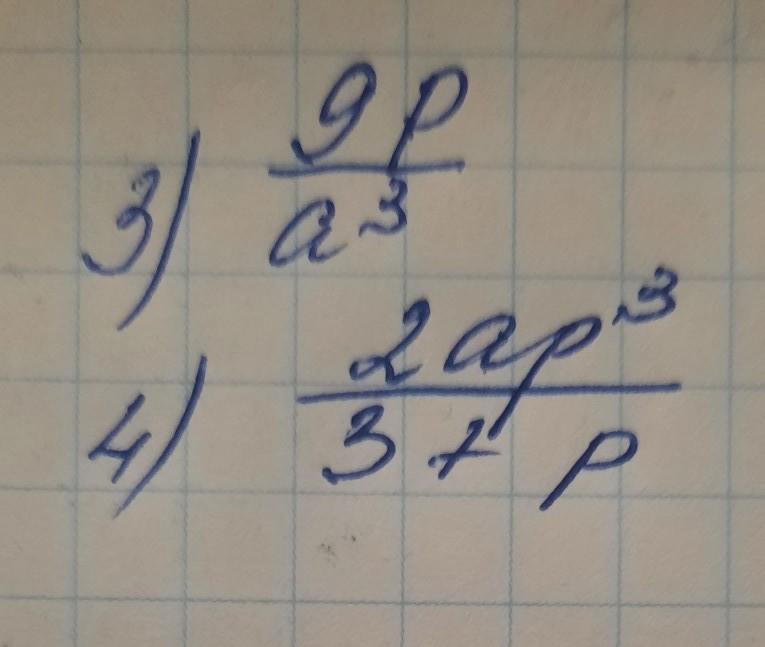 3) 9p
a³
4) 2ap³
3 + p